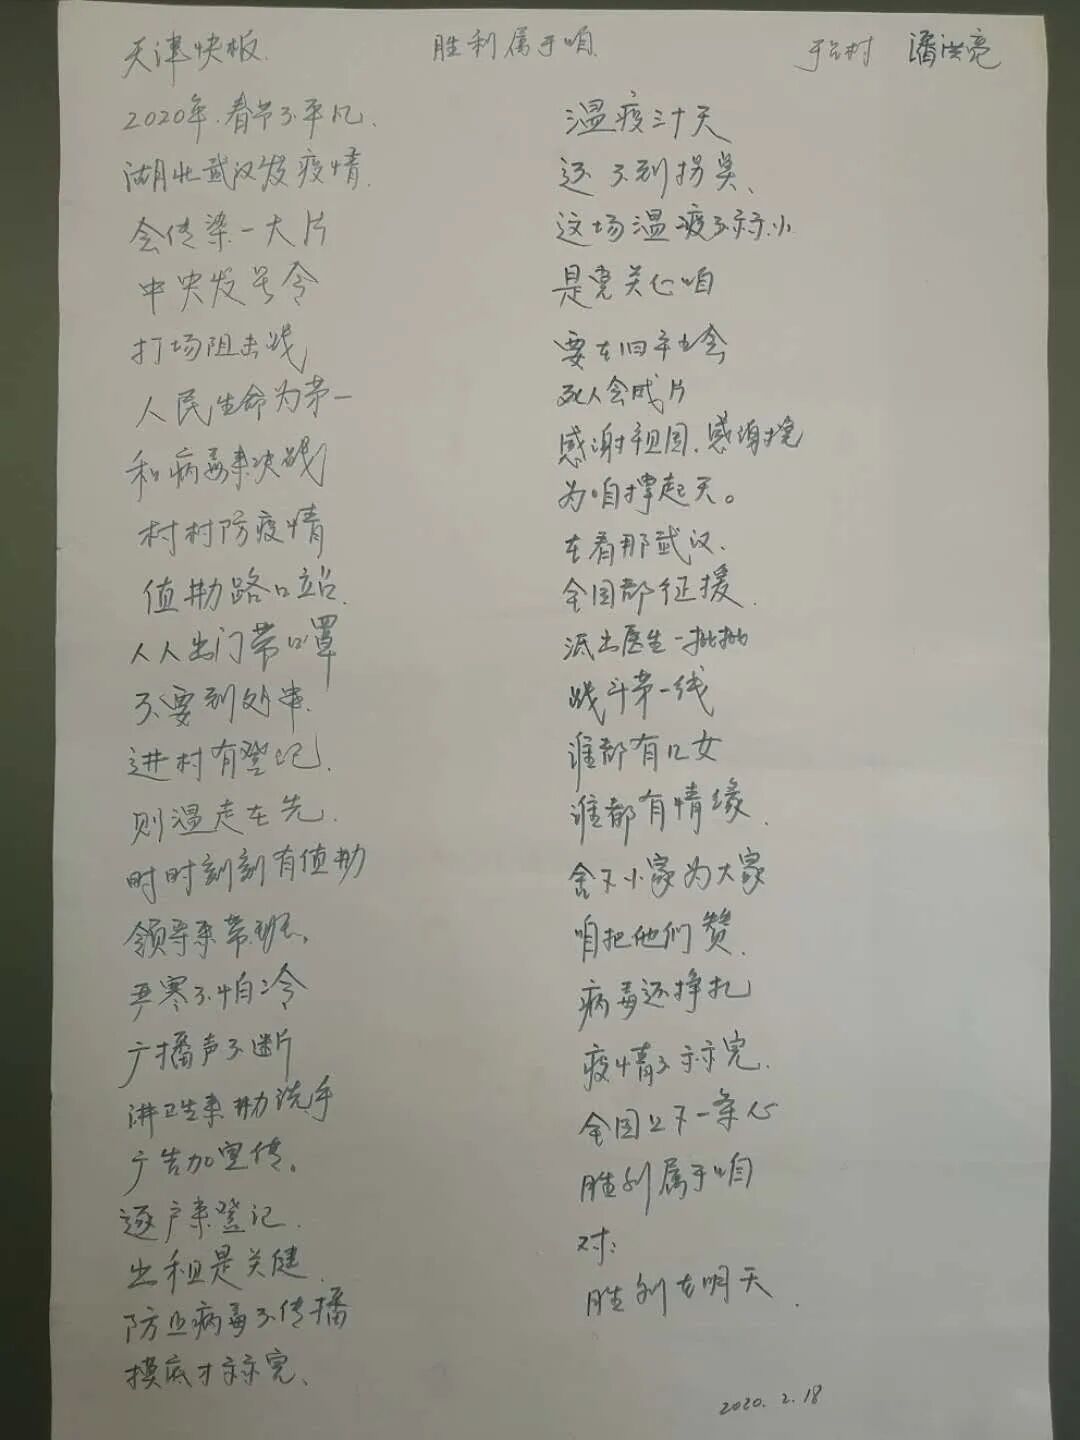 天津快板 胜利属于咱 于台村 潘洪亮
2020年.春节不平凡.
湖北武汉发疫情.
会传染一大片
中央发号令
打场阻击战
人民生命为第一
和病毒来决战
村村防疫情
值勤路口站.
人人出门带口罩
不要到处串.
进村有登记.
则温走在先.
时时刻刻有值勤
领导来带班.
严寒不怕冷
广播声不断
讲卫生来勤洗手
广告加宣传。
逐户来登记.
出租是关健.
防止病毒不传播
摸底才算完、
温疫三十天
还不到拐奌、
这场温疫不算小
是党关心咱
要在旧社会
死人会成片
感谢祖国.感谢党
为咱撑起天。
在看那武汉.
全国都征援.
派出医生一批批
战斗第一线
谁都有儿女
谁都有情缘.
舍下小家为大家
咱把他们赞.
病毒还挣扎
疫情不算完.
全国上下一条心
胜利属于咱
对:
胜利在明天.
2020.2.18